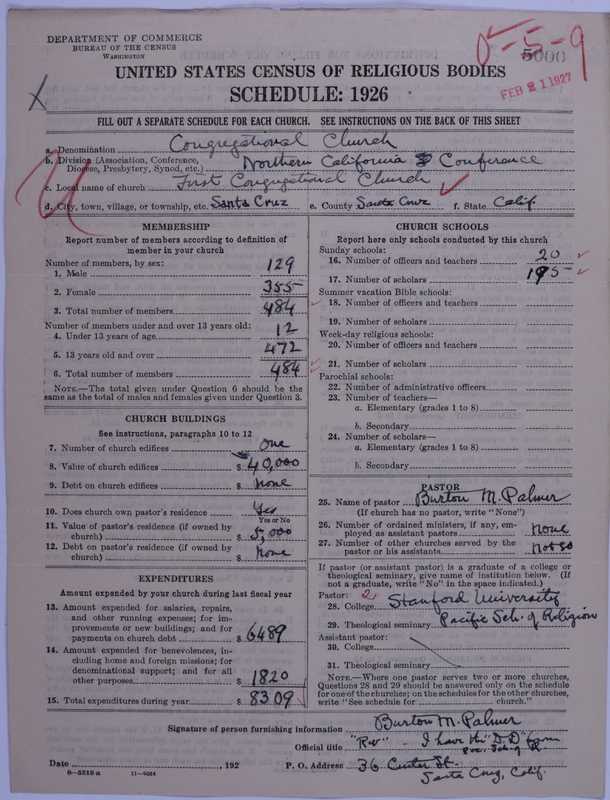 DEPARTMENT OF COMMERCE
BUREAU OF THE CENSUS
WASHINGTON
5-5-9
5000
FEB 21 1927
UNITED STATES CENSUS OF RELIGIOUS BODIES
SCHEDULE: 1926
X
FILL OUT A SEPARATE SCHEDULE FOR EACH CHURCH. SEE INSTRUCTIONS ON THE BACK OF THIS SHEET
a. Denomination Congregational Church
b. Division (Association, Conference, Diocese, Presbytery, Synod, etc.) Northern California Conference
c. Local name of church First Congregational Church
d. City, town, village, or township, etc. Santa Cruz e. County Santa Cruz f. State Calif.
MEMBERSHIP
Report number of members according to definition of
member in your church
Number of members, by sex:
1. Male 129
2. Female 355
3. Total number of members 484
Number of members under and over 13 years old:
4. Under 13 years of age 12
5. 13 years old and over 472
6. Total number of members 484
NOTE.—The total given under Question 6 should be the
same as the total of males and females given under Question 3.
CHURCH BUILDINGS
See instructions, paragraphs 10 to 12
7. Number of church edifices One
8. Value of church edifices $ 40,000
9. Debt on church edifices $ None
10. Does church own pastor's residence Yes
Yes or No
11. Value of pastor's residence (if owned by
church) $ 5,000
12. Debt on pastor's residence (if owned by
church) $ None
EXPENDITURES
Amount expended by your church during last fiscal year
13. Amount expended for salaries, repairs,
and other running expenses; for im-
provements or new buildings; and for
payments on church debt $ 6489
14. Amount expended for benevolences, in-
cluding home and foreign missions; for
denominational support; and for all
other purposes $ 1820
15. Total expenditures during year $ 8309
CHURCH SCHOOLS
Report here only schools conducted by this church
Sunday schools:
16. Number of officers and teachers 20
17. Number of scholars 195
Summer vacation Bible schools:
18. Number of officers and teachers
19. Number of scholars
Week-day religious schools:
20. Number of officers and teachers
21. Number of scholars
Parochial schools:
22. Number of administrative officers
23. Number of teachers—
a. Elementary (grades 1 to 8)
b. Secondary
24. Number of scholars—
a. Elementary (grades 1 to 8)
b. Secondary
PASTOR
25. Name of pastor Burton M. Palmer
(If church has no pastor, write "None")
26. Number of ordained ministers, if any, em-
ployed as assistant pastors None
27. Number of other churches served by the
pastor or his assistants
If pastor (or assistant pastor) is a graduate of a college or
theological seminary, give name of institution below. (If
not a graduate, write "No" in the space indicated.)
Pastor: 2
28. College Stanford University
29. Theological seminary Pacific Sch. of Religion
Assistant pastor:
30. College
31. Theological seminary
NOTE.—Where one pastor serves two or more churches,
Questions 28 and 29 should be answered only on the schedule
for one of the churches; on the schedules for the other churches,
write "See schedule for church."
Signature of person furnishing information Burton M. Palmer
Official title "Rev" - I have the D.D. from
Pac. Sch. of R.
Date , 192 P. O. Address 36 Center St.
Santa Cruz, Calif.
8—5518 a 11—9054